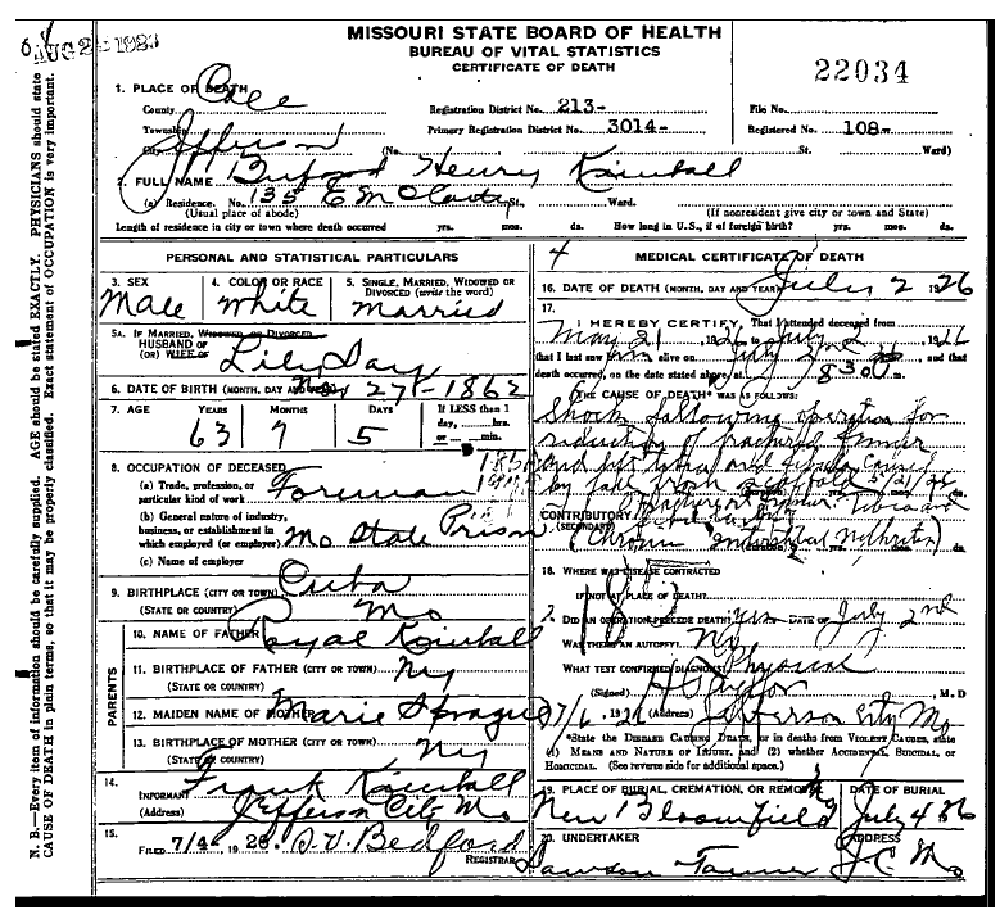 MISSOURI STATE BOARD OF HEALTH
BUREAU OF VITAL STATISTICS
CERTIFICATE OF DEATH
22034
1. PLACE OF DEATH
County Cole Registration District No. 213- File No.
Township Primary Registration District No. 3014- Registered No. 108-
City Jefferson (No. St., Ward)
2. FULL NAME Buford Henry Kimball
(a) Residence. No. 135 E McCarty St., Ward.
(Usual place of abode) (If nonresident give city or town and State)
Length of residence in city or town where death occurred yrs. mos. ds. How long in U.S., if of foreign birth? yrs. mos. ds.
PERSONAL AND STATISTICAL PARTICULARS
3. SEX 4. COLOR OR RACE 5. SINGLE, MARRIED, WIDOWED OR DIVORCED (write the word)
Male White Married
5A. IF MARRIED, WIDOWED OR DIVORCED
HUSBAND OF
(OR) WIFE OF Lily Day
6. DATE OF BIRTH (MONTH, DAY AND YEAR) 27 - 1862
7. AGE YEARS MONTHS DAYS If LESS than 1 day, hrs. or min.
63 7 5
8. OCCUPATION OF DECEASED
(a) Trade, profession, or particular kind of work Foreman
(b) General nature of industry, business, or establishment in which employed (or employer) Mo State Prison
(c) Name of employer
9. BIRTHPLACE (CITY OR TOWN) Cuba
(STATE OR COUNTRY) Mo
10. NAME OF FATHER Royal Kimball
11. BIRTHPLACE OF FATHER (CITY OR TOWN) Ny
(STATE OR COUNTRY)
12. MAIDEN NAME OF MOTHER Marie Sprague
13. BIRTHPLACE OF MOTHER (CITY OR TOWN) Ny
(STATE OR COUNTRY)
PARENTS
14. INFORMANT Frank Kimball
(Address) Jefferson City Mo
15. FILED 7/4 1926 Bedford
REGISTRAR
4 MEDICAL CERTIFICATE OF DEATH
16. DATE OF DEATH (MONTH, DAY AND YEAR) July 2 1926
17.
I HEREBY CERTIFY, That I attended deceased from
May 21, 1926 to July 2, 1926
that I last saw him alive on July 2nd, and that
death occurred, on the date stated above, at 830 m.
THE CAUSE OF DEATH* WAS AS FOLLOWS:
Shock following operation for
reduction of fractured femur
and tibia and fibula caused
by fall from scaffold 5/21/26
CONTRIBUTORY
(SECONDARY)
(Chronic Interstitial Nephritis)
18. WHERE WAS DISEASE CONTRACTED
IF NOT AT PLACE OF DEATH?
DID AN OPERATION PRECEDE DEATH? yes DATE OF July 2nd
WAS THERE AN AUTOPSY? No
WHAT TEST CONFIRMED DIAGNOSIS? Physical
(Signed) , M. D
7/6, 1926 (Address) Jefferson City Mo
*State the DISEASE CAUSING DEATH, or in deaths from VIOLENT CAUSES, state
(1) MEANS AND NATURE OF INJURY, and (2) whether ACCIDENTAL, SUICIDAL, or
HOMICIDAL. (See reverse side for additional space.)
19. PLACE OF BURIAL, CREMATION, OR REMOVAL DATE OF BURIAL
New Bloomfield July 4 26
20. UNDERTAKER ADDRESS
Dawson Tanner J C Mo
N. B.—Every item of information should be carefully supplied. AGE should be stated EXACTLY. PHYSICIANS should state
CAUSE OF DEATH in plain terms, so that it may be properly classified. Exact statement of OCCUPATION is very important.